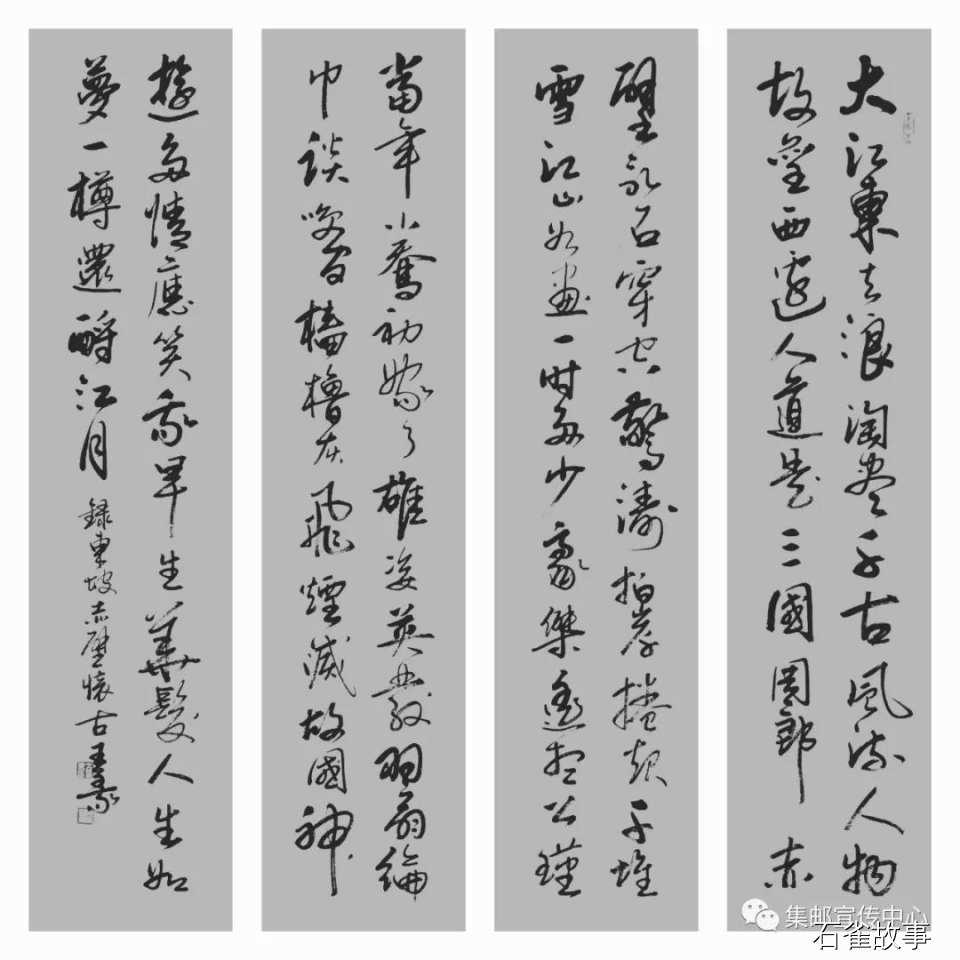 大江東去浪淘盡千古風流人物
故壘西邊人道是三國周郎赤
壁亂石穿空驚濤拍岸捲起千堆
雪江山如畫一时多少豪傑遙想公瑾
當年小喬初嫁了雄姿英發羽扇綸
巾談笑間檣櫓灰飛煙滅故國神
遊多情應笑我早生華髮人生如
夢一樽還酹江月
錄東坡赤壁懷古
集邮宣传中心
石雀故事